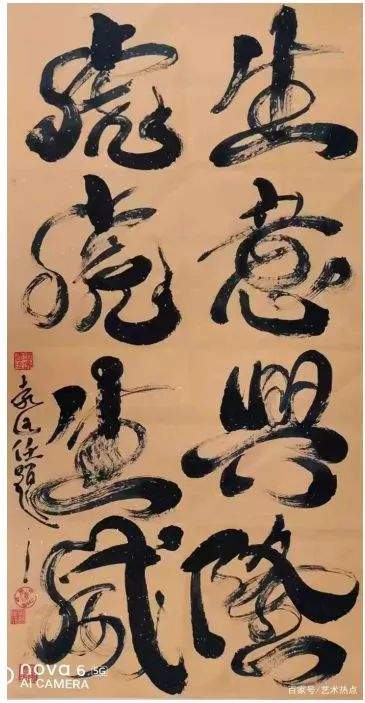 生意興隆
虎虎生威
nova 6 5G
AI CAMERA
百家号/艺术热点